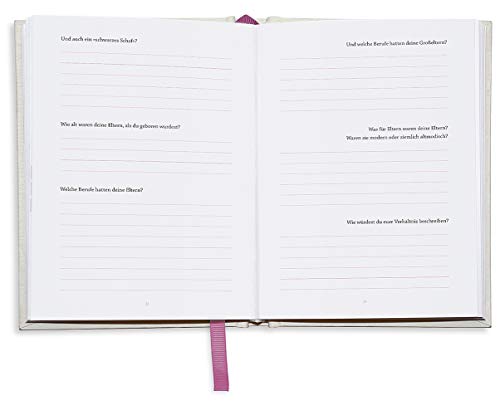 Und auch ein »schwarzes Schaf«?
Wie alt waren deine Eltern, als du geboren wurdest?
Welche Berufe hatten deine Eltern?
Und welche Berufe hatten deine Großeltern?
Was für Eltern waren deine Eltern?
Waren sie modern oder ziemlich altmodisch?
Wie würdest du euer Verhältnis beschreiben?